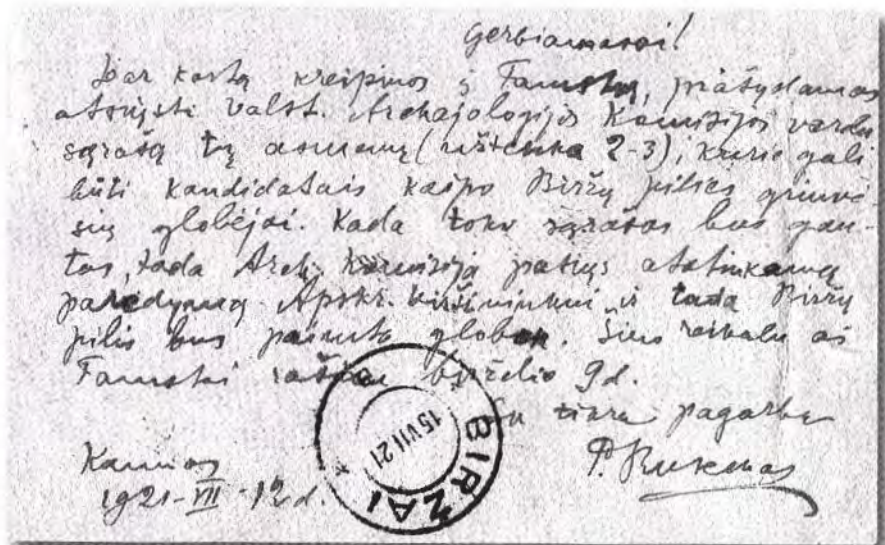 Gerbiamasai!
Dar kartą kreipiuos į Tamstą, prašydamas
atsiųsti Valst. Archajologijos Komisijos vardu
sąrašą tų asmenų (užtenka 2-3), kurie gali
būti kandidatais kaipo Biržų pilies griuvė-
sių globėjai. Kada toks sąrašas bus gau-
tas, tada Arch. Komisija pasiųs atatinkamą
paredymą Apskr. Viršininkui ir tada Biržų
pilis bus paimta globon. Šiuo reikalu aš
Tamstai rašiau birželio 9 d.
Su tikra pagarba
Kaunas
1921-VII-12 d.
BIRŽAI
15 VII 21